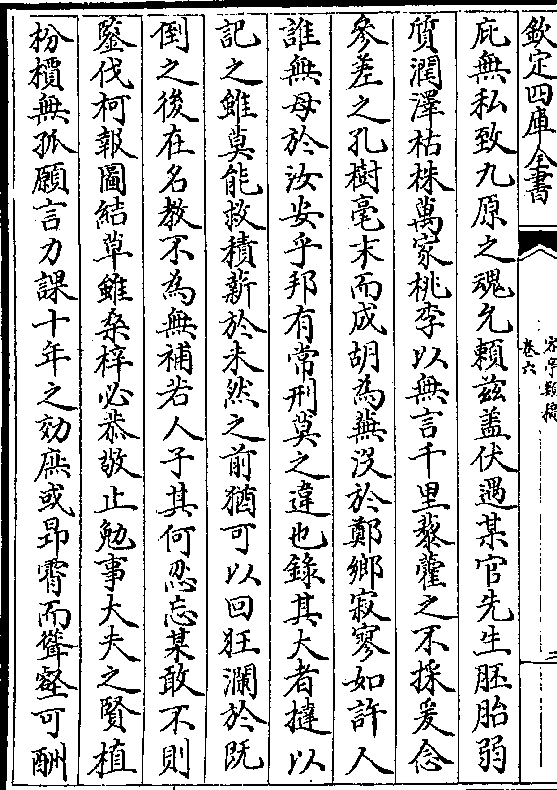 欽定四庫全書
卷六
三
庇無私致九原之魂允頼兹盖伏遇某官先生胚胎弱
質潤澤枯株萬家桃李以無言千里藜藿之不採爰念
參差之孔樹毫末而成胡為蕪沒於鄭鄉寂寥如許人
誰無母於汝安乎邦有常刑莫之違也錄其大者撻以
記之雖莫能救積薪於未然之前猶可以回狂瀾於既
倒之後在名教不為無補若人子其何忍忘某敢不則
鑒伐柯報圖結草雖桑梓必恭敬止勉事大夫之賢植
枌檟無孤願言力課十年之効庶或昻霄而聳壑可酬